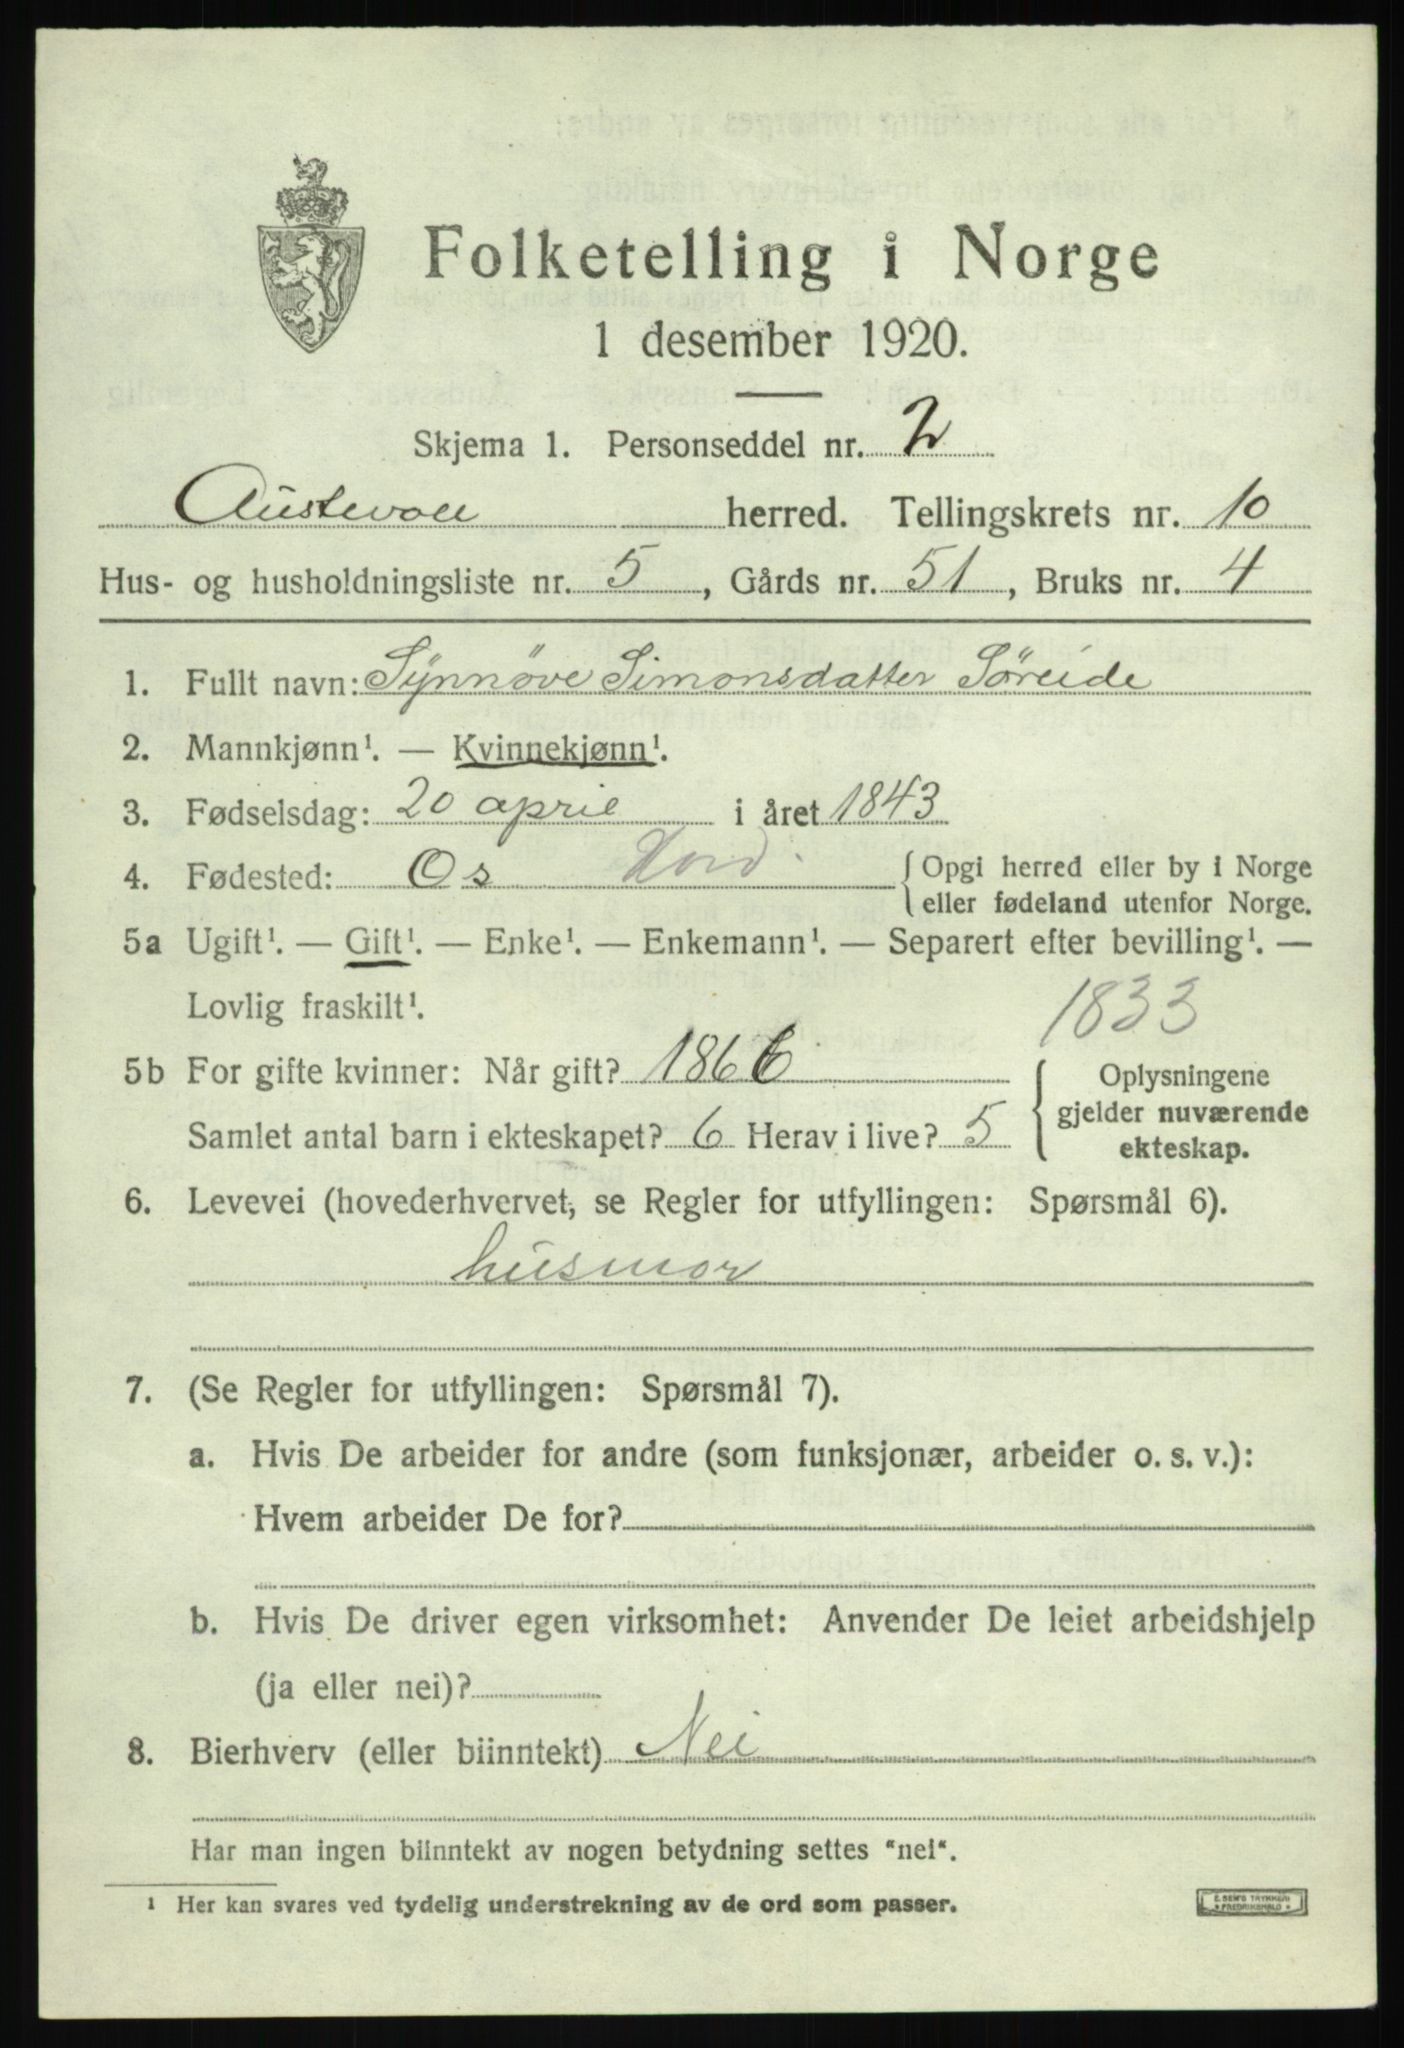 Folketelling i Norge
1 desember 1920.
Skjema 1. Personseddel nr. 2
Austevoll herred. Tellingskrets nr. 10
Hus- og husholdningsliste nr. 5, Gårds nr. 51, Bruks nr. 4
1. Fullt navn: Synnöve Simonsdatter Söreide
2. Mannkjønn¹. — Kvinnekjønn¹.
3. Fødselsdag: 20 april i året 1843
4. Fødested: Os Hord. { Opgi herred eller by i Norge
eller fødeland utenfor Norge.
5a Ugift¹. — Gift¹. — Enke¹. — Enkemann¹. — Separert efter bevilling¹. —
Lovlig fraskilt¹. 1833
5b For gifte kvinner: Når gift? 1866 { Oplysningene
gjelder nuværende
Samlet antal barn i ekteskapet? 6 Herav i live? 5
ekteskap.
6. Levevei (hovederhvervet, se Regler for utfyllingen: Spørsmål 6).
husmor
7. (Se Regler for utfyllingen: Spørsmål 7).
a. Hvis De arbeider for andre (som funksjonær, arbeider o. s. v.):
Hvem arbeider De for?
b. Hvis De driver egen virksomhet: Anvender De leiet arbeidshjelp
(ja eller nei)?
8. Bierhverv (eller biinntekt) Nei
Har man ingen biinntekt av nogen betydning settes "nei".
¹ Her kan svares ved tydelig understrekning av de ord som passer.
E. SEM'S TRYKKERI
* FREDRIKSHALD *